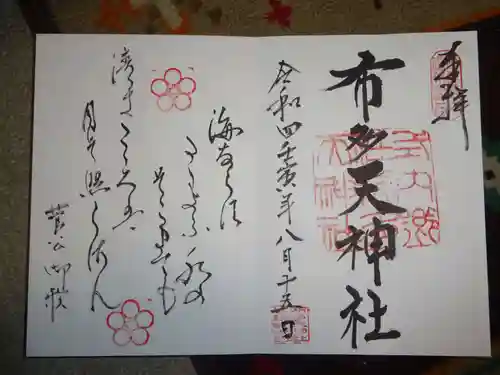 奉拝
布多天神社
令和四壬寅年八月十五日
海ならす
たゝへる水の
そこまても
清きこゝろは
月そ照らさん
菅公御歌